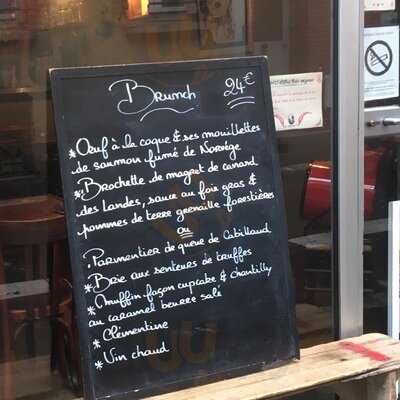 Brunch 24€
* Œuf à la coque & ses mouillettes
de saumon fumé de Norvège
* Brochette de magret de canard
des Landes, sauce au foie gras &
pommes de terre grenaille forestières
ou
Parmentier de queue de Cabillaud
* Brie aux senteurs de truffes
* Muffin façon cupcake & chantilly
au caramel beurre salé
* Clémentine
* Vin chaud